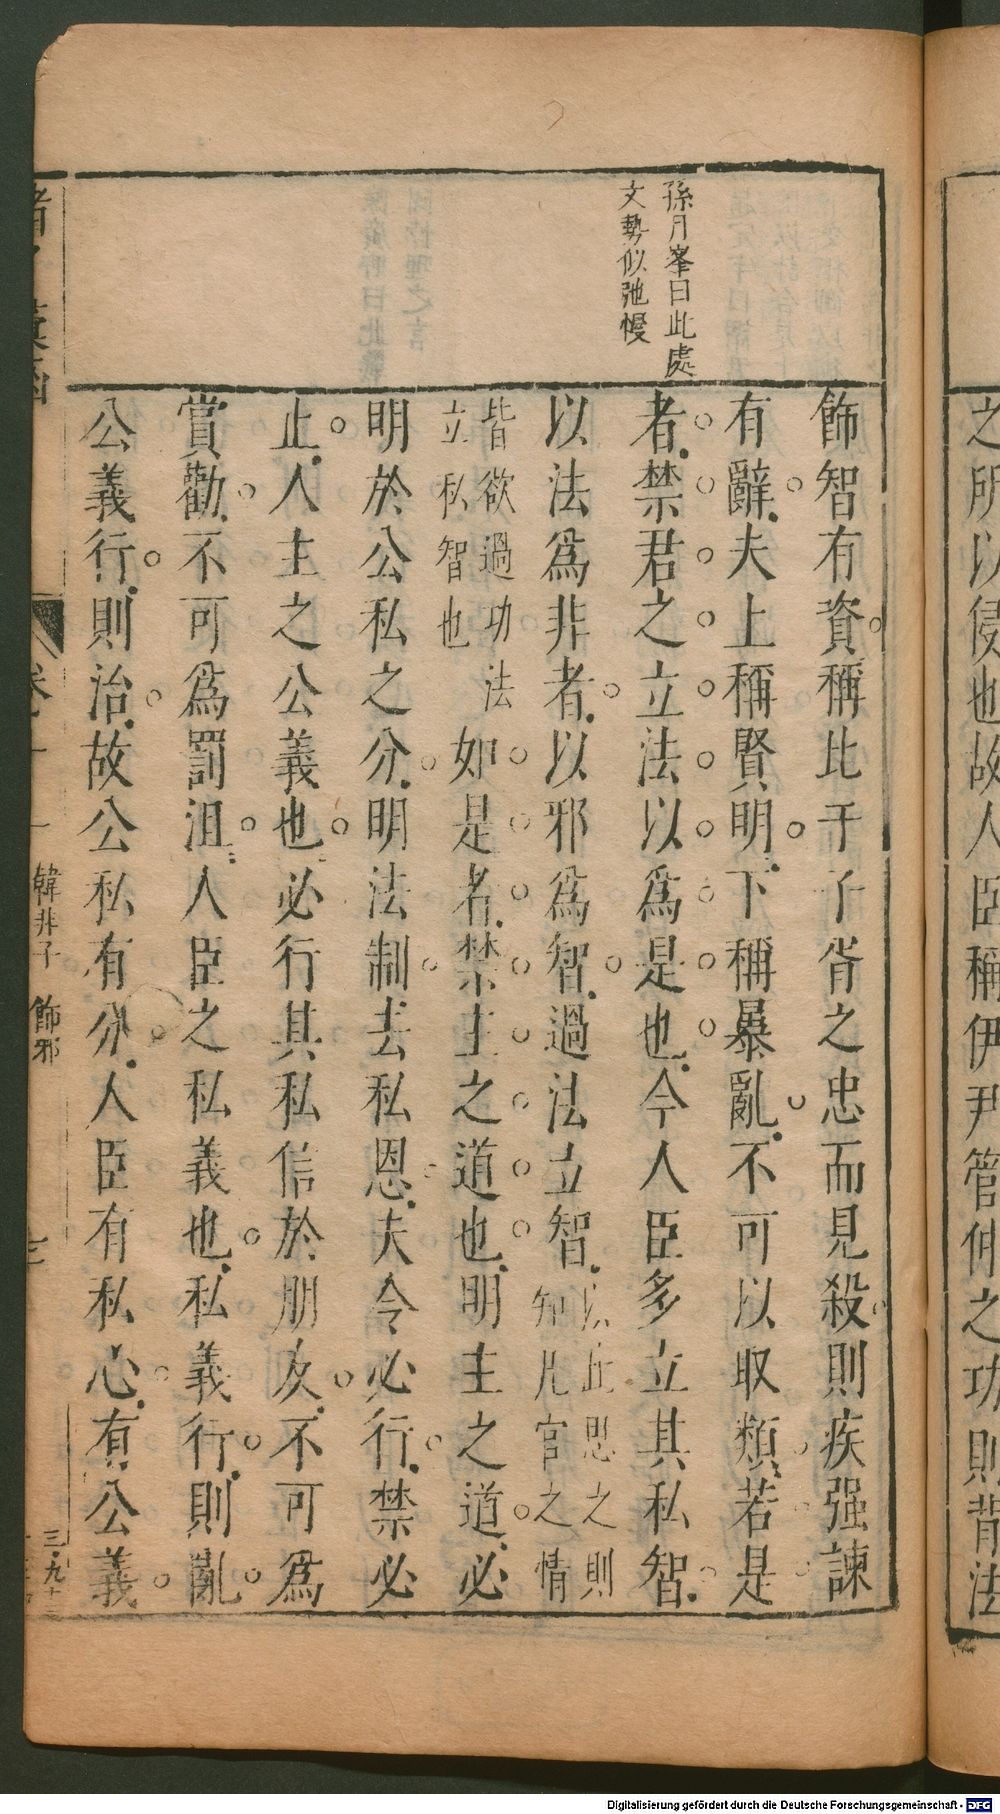 之所以侵也故人臣稱伊尹管仲之功則背法
孫月峯曰此處
文勢似弛慢
飾智有資稱比干子胥之忠而見殺則疾强諫
有辭夫上稱賢明下稱暴亂不可以取類若是
者禁君之立法以爲是也今人臣多立其私智
以法爲非者以邪爲智過法立智以此思之則
知凡官之情
皆欲過功法
立私智也
如是者禁主之道也明主之道必
明於公私之分明法制去私恩夫令必行禁必
止人主之公義也必行其私信於朋友不可爲
賞勸不可爲罰沮人臣之私義也私義行則亂
公義行則治故公私有分人臣有私心有公義
韓非子 飾邪
Digitalisierung gefördert durch die Deutsche Forschungsgemeinschaft - DFG